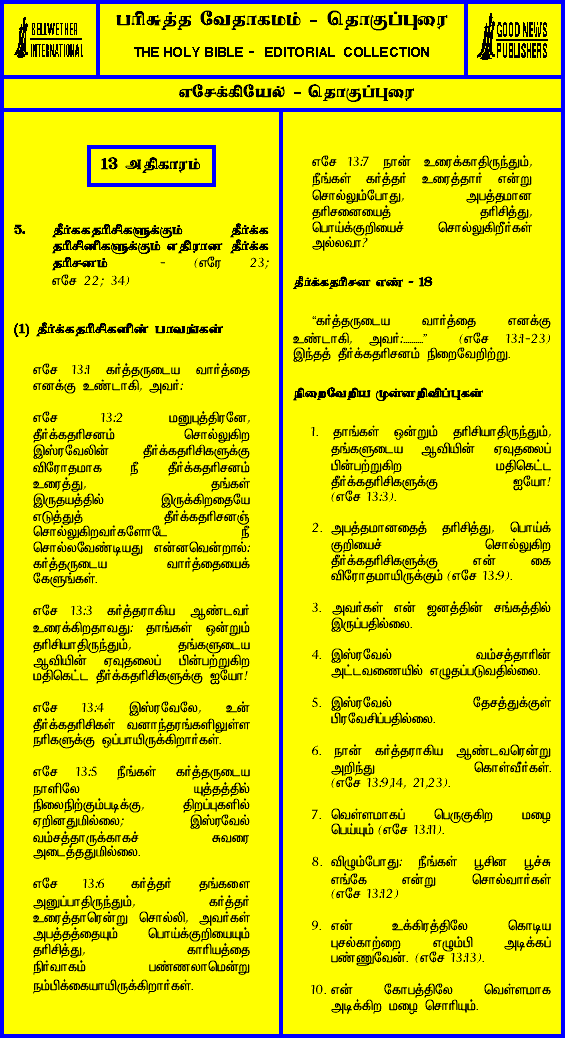 BELLWETHER
INTERNATIONAL
பரிசுத்த வேதாகமம் - தொகுப்புரை
THE HOLY BIBLE - EDITORIAL COLLECTION
GOOD NEWS
PUBLISHERS
எசேக்கியேல் - தொகுப்புரை
13 அதிகாரம்
5. தீர்ககதரிசிகளுக்கும் தீர்க்க
தரிசினிகளுக்கும் எதிரான தீர்க்க
தரிசனம் - (எரே 23;
எசே 22; 34)
(1) தீர்க்கதரிசிகளின் பாவங்கள்
எசே 13:1 கர்த்தருடைய வார்த்தை
எனக்கு உண்டாகி, அவர்:
எசே 13:2 மனுபுத்திரனே,
தீர்க்கதரிசனம் சொல்லுகிற
இஸ்ரவேலின் தீர்க்கதரிசிகளுக்கு
விரோதமாக நீ தீர்க்கதரிசனம்
உரைத்து, தங்கள்
இருதயத்தில் இருக்கிறதையே
எடுத்துத் தீர்க்கதரிசனஞ்
சொல்லுகிறவர்களோடே நீ
சொல்லவேண்டியது என்னவென்றால்:
கர்த்தருடைய வார்த்தையைக்
கேளுங்கள்.
எசே 13:3 கர்த்தராகிய ஆண்டவர்
உரைக்கிறதாவது: தாங்கள் ஒன்றும்
தரிசியாதிருந்தும், தங்களுடைய
ஆவியின் ஏவுதலைப் பின்பற்றுகிற
மதிகெட்ட தீர்க்கதரிசிகளுக்கு ஐயோ!
எசே 13:4 இஸ்ரவேலே, உன்
தீர்க்கதரிசிகள் வனாந்தரங்களிலுள்ள
நரிகளுக்கு ஒப்பாயிருக்கிறார்கள்.
எசே 13:5 நீங்கள் கர்த்தருடைய
நாளிலே யுத்தத்தில்
நிலைநிற்கும்படிக்கு, திறப்புகளில்
ஏறினதுமில்லை; இஸ்ரவேல்
வம்சத்தாருக்காகச் சுவரை
அடைத்ததுமில்லை.
எசே 13:6 கர்த்தர் தங்களை
அனுப்பாதிருந்தும், கர்த்தர்
உரைத்தாரென்று சொல்லி, அவர்கள்
அபத்தத்தையும் பொய்க்குறியையும்
தரிசித்து, காரியத்தை
நிர்வாகம் பண்ணலாமென்று
நம்பிக்கையாயிருக்கிறார்கள்.
எசே 13:7 நான் உரைக்காதிருந்தும்,
நீங்கள் கர்த்தர் உரைத்தார் என்று
சொல்லும்போது, அபத்தமான
தரிசனையைத் தரிசித்து,
பொய்க்குறியைச் சொல்லுகிறீர்கள்
அல்லவா?
தீர்க்கதரிசன எண் - 18
“கர்த்தருடைய வார்த்தை எனக்கு
உண்டாகி, அவர்:..........” (எசே 13:1-23)
இந்தத் தீர்க்கதரிசனம் நிறைவேறிற்று.
நிறைவேறிய முன்னறிவிப்புகள்
1. தாங்கள் ஒன்றும் தரிசியாதிருந்தும்,
தங்களுடைய ஆவியின் ஏவுதலைப்
பின்பற்றுகிற மதிகெட்ட
தீர்க்கதரிசிகளுக்கு ஐயோ!
(எசே 13:3).
2. அபத்தமானதைத் தரிசித்து, பொய்க்
குறியைச் சொல்லுகிற
தீர்க்கதரிசிகளுக்கு என் கை
விரோதமாயிருக்கும் (எசே 13:9).
3. அவர்கள் என் ஜனத்தின் சங்கத்தில்
இருப்பதில்லை.
4. இஸ்ரவேல் வம்சத்தாரின்
அட்டவணையில் எழுதப்படுவதில்லை.
5. இஸ்ரவேல் தேசத்துக்குள்
பிரவேசிப்பதில்லை.
6. நான் கர்த்தராகிய ஆண்டவரென்று
அறிந்து கொள்வீர்கள்.
(எசே 13:9,14, 21,23).
7. வெள்ளமாகப் பெருகுகிற மழை
பெய்யும் (எசே 13:11).
8. விழும்போது: நீங்கள் பூசின பூச்சு
எங்கே என்று சொல்வார்கள்
(எசே 13:12)
9. என் உக்கிரத்திலே கொடிய
புசல்காற்றை எழும்பி அடிக்கப்
பண்ணுவேன். (எசே 13:13).
10. என் கோபத்திலே வெள்ளமாக
அடிக்கிற மழை சொரியும்.